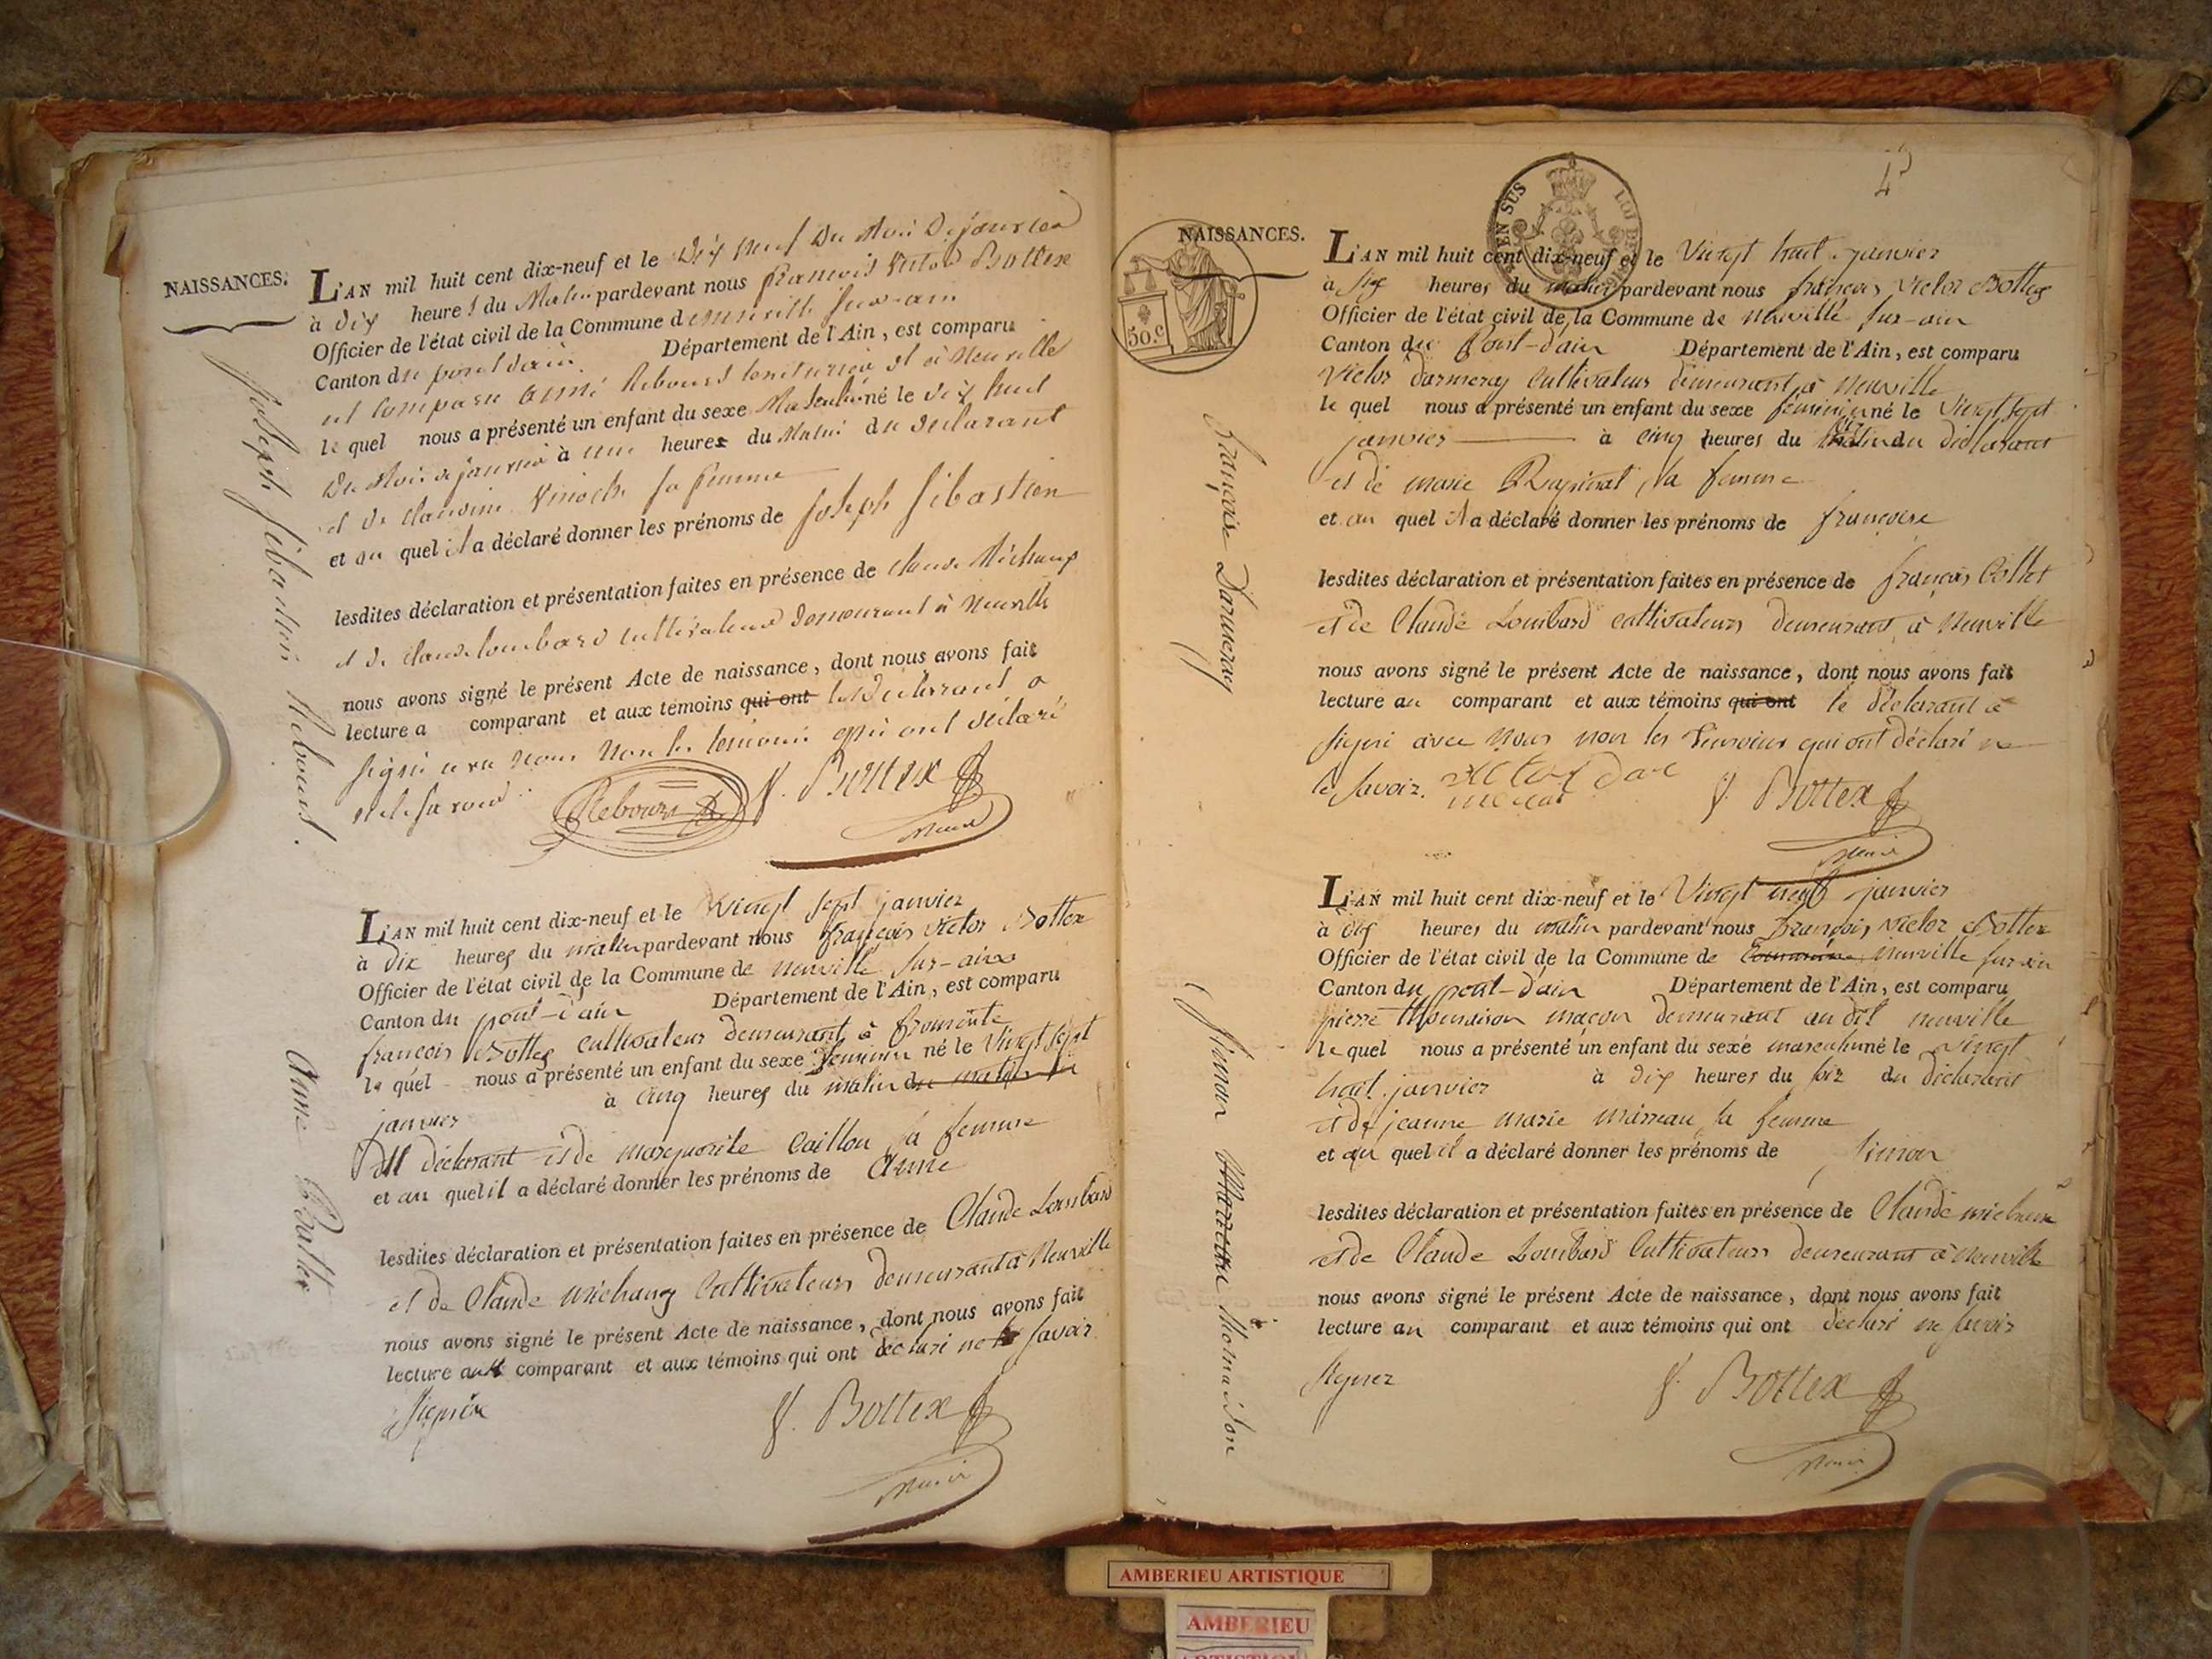 NAISSANCES.
L'AN mil huit cent dix-neuf et le Dix neuf Du Mois De janvier
à dix heures du Matin pardevant nous francois Victor Bottex
Officier de l'état civil de la Commune de neuville sur-ain
Canton du pont dain Département de l'Ain, est comparu
est comparu aimé Rebours Et à Neuville
le quel nous a présenté un enfant du sexe Masculin né le dix huit
Du Mois de janvier à une heures du Matin du declarant
et de claudine sa femme
et au quel il a déclaré donner les prénoms de joseph sébastien
lesdites déclaration et présentation faites en présence de claude Michaux
et de claude lombard cultivateurs demeurant à Neuville
nous avons signé le présent Acte de naissance, dont nous avons fait
lecture a comparant et aux témoins qui ont le Déclarant a
signé avec nous Non les temoins qui ont déclaré
ne le savoir.
Rebours
f. Bottex
maire
joseph sébastien Rebours.
L'AN mil huit cent dix-neuf et le vingt sept janvier
à dix heures du matin pardevant nous françois victor Bottex
Officier de l'état civil de la Commune de neuville sur-ain
Canton du pont-d'ain Département de l'Ain, est comparu
françois Bottex cultivateur demeurant à fromente
le quel nous a présenté un enfant du sexe feminin né le vingt sept
janvier à cinq heures du matin du matin
du déclarant et de marguerite Caillou sa femme
et au quel il a déclaré donner les prénoms de Anne
lesdites déclaration et présentation faites en présence de Claude Lombard
et de Claude michaux Cultivateurs demeurant à Neuville
nous avons signé le présent Acte de naissance, dont nous avons fait
lecture aux comparant et aux témoins qui ont déclaré ne savoir
signer
f. Bottex
maire
Anne Bottex
4
NAISSANCES.
50.c
EN SUS
L'AN mil huit cent dix-neuf et le Vingt huit janvier
à six heures du matin pardevant nous françois victor Bottex
Officier de l'état civil de la Commune de neuville sur-ain
Canton du Pont-d'ain Département de l'Ain, est comparu
victor darmeray cultivateur demeurant à Neuville
le quel nous a présenté un enfant du sexe féminin né le vingt sept
janvier à cinq heures du du déclarant
et de marie Rapinat sa femme
et au quel il a déclaré donner les prénoms de françoise
lesdites déclaration et présentation faites en présence de françois Collet
et de Claude Lombard cultivateurs demeurant à Neuville
nous avons signé le présent Acte de naissance, dont nous avons fait
lecture au comparant et aux témoins qui ont le déclarant a
signé avec nous non les témoins qui ont déclaré ne
le savoir.
f. Bottex
maire
Françoise Darmeray
L'AN mil huit cent dix-neuf et le Vingt neuf janvier
à dix heures du matin pardevant nous françois victor Bottex
Officier de l'état civil de la Commune de Commune neuville sur ain
Canton du pont-d'ain Département de l'Ain, est comparu
pierre thomaison maçon demeurant au dit neuville
le quel nous a présenté un enfant du sexe masculin né le vingt
huit janvier à dix heures du soir du déclarant
et de jeanne marie sa femme
et au quel il a déclaré donner les prénoms de Simon
lesdites déclaration et présentation faites en présence de Claude michaux
et de Claude Lombard Cultivateurs demeurant à Neuville
nous avons signé le présent Acte de naissance, dont nous avons fait
lecture au comparant et aux témoins qui ont déclaré ne savoir
signer
f. Bottex
maire
Simon Thomaison
AMBERIEU ARTISTIQUE
AMBERIEU
ARTISTIQUE